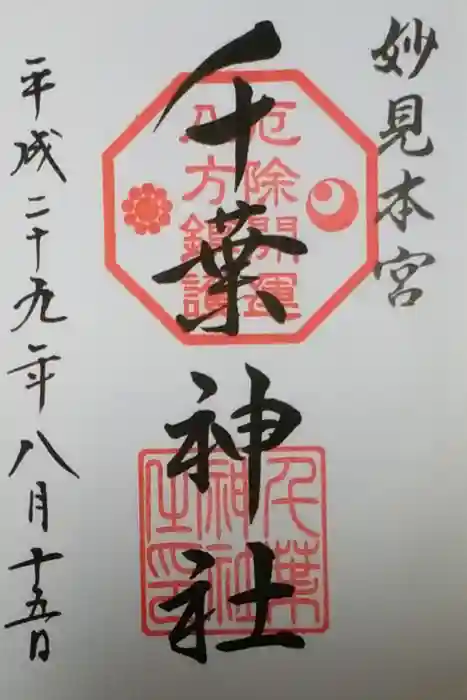 妙見本宮
厄除開運
八方鎮護
千葉神社
平成二十九年八月十五日